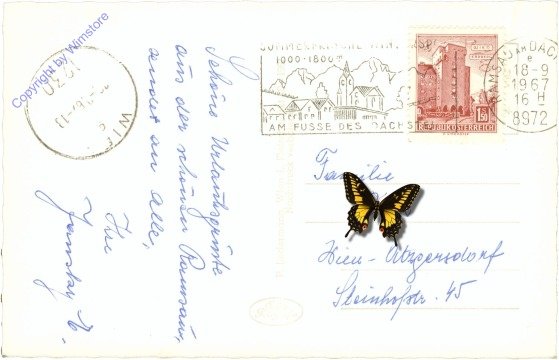 Copyright by Wimstore
Schöne Urlaubsgrüße
aus der schönen Ramsau,
sendet an Alle,
Ihr
SOMMERFRISCHE
1000-1800m
AM FUSSE DES DACHSTEIN
WIEN
REPUBLIK ÖSTERREICH
1.50
RAMSAU AM DACH
e
18-9
1967
16 H
8972
Familie
Wien-Atzgersdorf
Steinhofstr. 45